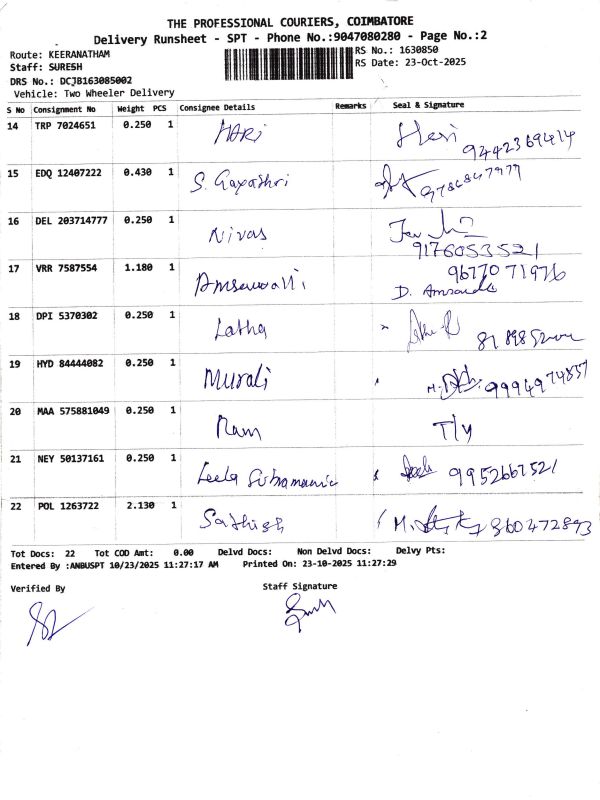 THE PROFESSIONAL COURIERS, COIMBATORE
Delivery Runsheet - SPT - Phone No.:9047080280 - Page No.:2
Route: KEERANATHAM
RS No.: 1630850
Staff: SURESH
RS Date: 23-Oct-2025
DRS No.: DCJB163085002
Vehicle: Two Wheeler Delivery
S No Consignment No Weight PCS Consignee Details Remarks Seal & Signature
14 TRP 7024651 0.250 1 HARI Hari
9442369414
15 EDQ 12407222 0.430 1 S. Gayathri
16 DEL 203714777 0.250 1 Nivas
9176053521
17 VRR 7587554 1.180 1 9677071976
D.
18 DPI 5370302 0.250 1 Latha
19 HYD 84444082 0.250 1 Murali 9994974857
20 MAA 575881049 0.250 1 Ram
21 NEY 50137161 0.250 1 Leela 9952667521
22 POL 1263722 2.130 1 Sathish M. 860472893
Tot Docs: 22 Tot COD Amt: 0.00 Delvd Docs: Non Delvd Docs: Delvy Pts:
Entered By :ANBUSPT 10/23/2025 11:27:17 AM Printed On: 23-10-2025 11:27:29
Verified By Staff Signature